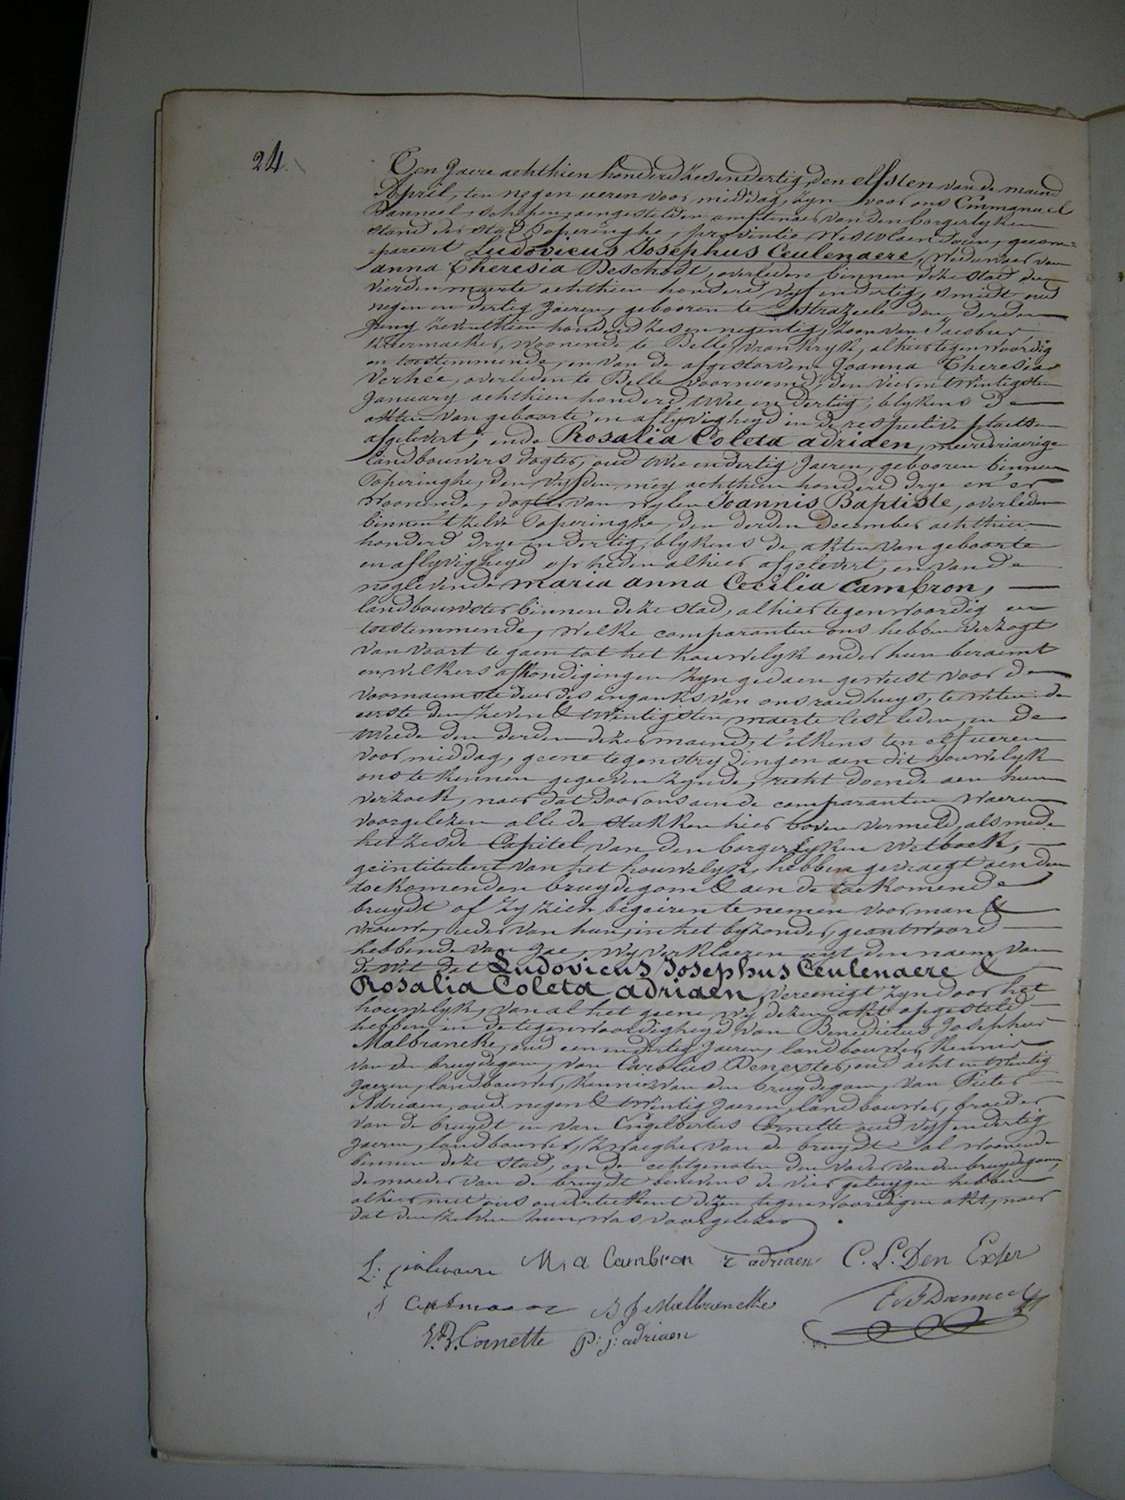 24.
Een Jaere achthien honderd zesendertig, den elfsten van de maend
April, ten negen ueren voor middag, zyn voor ons Emmanuel
schepen, aengestelden amptenaer van den borgerlyken
stand der stad Poperinghe, provintie Westvlaenderen, gecom-
pareert Ludovicus Josephus Ceulenaere, weduwaer van
anna Theresia Beschodt, overleden binnen deze stad den
vierden maerte achthien honderd vyf en dertig, smidt, oud
negen en dertig Jaeren, gebooren te Strazeele den derden
Juny zeventhien honderd zes en negentig, zoon van Jacobus
woonende te Belle, vrankryk, alhier tegenwoordig
en toestemmende, en van de afgestorvene Joanna Theresia
Verhée, overleden te Belle voornoemd, den vier en twintigsten
January achthien honderd twee en dertig, blykens de
akten van geboorte en aflyvigheyd in de respective plaetsen
afgelevert; ende Rosalia Coleta adriaen, meerderjaerige
landbouwers dogter, oud twee en dertig Jaeren, gebooren binnen
Poperinghe, den vyfden mey achthien honderd drye en er
woonende, dogter van wylen Joannis Baptiste, overleden
binnen 't zelve Poperinghe, den derden December achthien
honderd drye en dertig, blykens de akten van geboorte
en aflyvigheyd op heden alhier afgelevert, en van de
noglevende maria anna Cecilia Cambron,
landbouwster binnen deze stad, alhier tegenwoordig en
toestemmende, welke comparanten ons hebben verzogt
van voort te gaen tot het houwelyk onder hun beraemt
en welkers afkondigingen zyn gedaen geweest voor de
voornaemste deur des inganks van ons raedhuys, te weten: de
eerste den zeven & twintigsten maerte lest leden, en de
tweede den derden dezer maend, t'elkens ten elf ueren
voor middag, geene tegenstrydingen aen dit houwelyk
ons te kennen gegeven zynde, recht doende aen hun
verzoek, naer dat door ons aen de comparanten waeren
voorgelezen alle de stukken hier boven vermeld, als mede
het zesde Capitel van den borgerlyken wetboek,
geïntituleert van het houwelyk, hebben gevraegt aen den
toekomenden bruydegom & aen de toekomende
bruydt of zy zich begeiren te nemen voor man &
vrouw, ieder van hun in het byzonder, geantwoord
hebbende van Jae, wy verklaeren uyt den naem van
de wet dat Ludovicus Josephus Ceulenaere &
Rosalia Coleta adriaen, vereenigt zyn door het
houwelyk, van al het geene wy dezen akt opgesteld
hebben in de tegenwoordigheyd van Benedictus Josephus
Malbrancke, oud een en dertig Jaeren, landbouwer, kennis
van den bruydegom, van Carolus Denexter, oud acht en twintig
Jaeren, landbouwer, kennis van den bruydegom, van Pieter
Adriaen, oud negen & twintig Jaeren, landbouwer, broeder
van de bruydt en van Engelbertus Cornette oud vyf en dertig
Jaeren, landbouwer, zwaeger van de bruydt al woonende
binnen deze stad, en de echtgenoten den vader van den bruydegom,
de moeder van de bruydt benevens de vier getuygen hebben
alhier met ons onderteekent dezen tegenwoordigen akt, naer
dat den zelven hun was voorgelezen
M. a Cambron r adriaen C. L. Den Exter
B J Malbrancke
Cornette p: j: adriaen